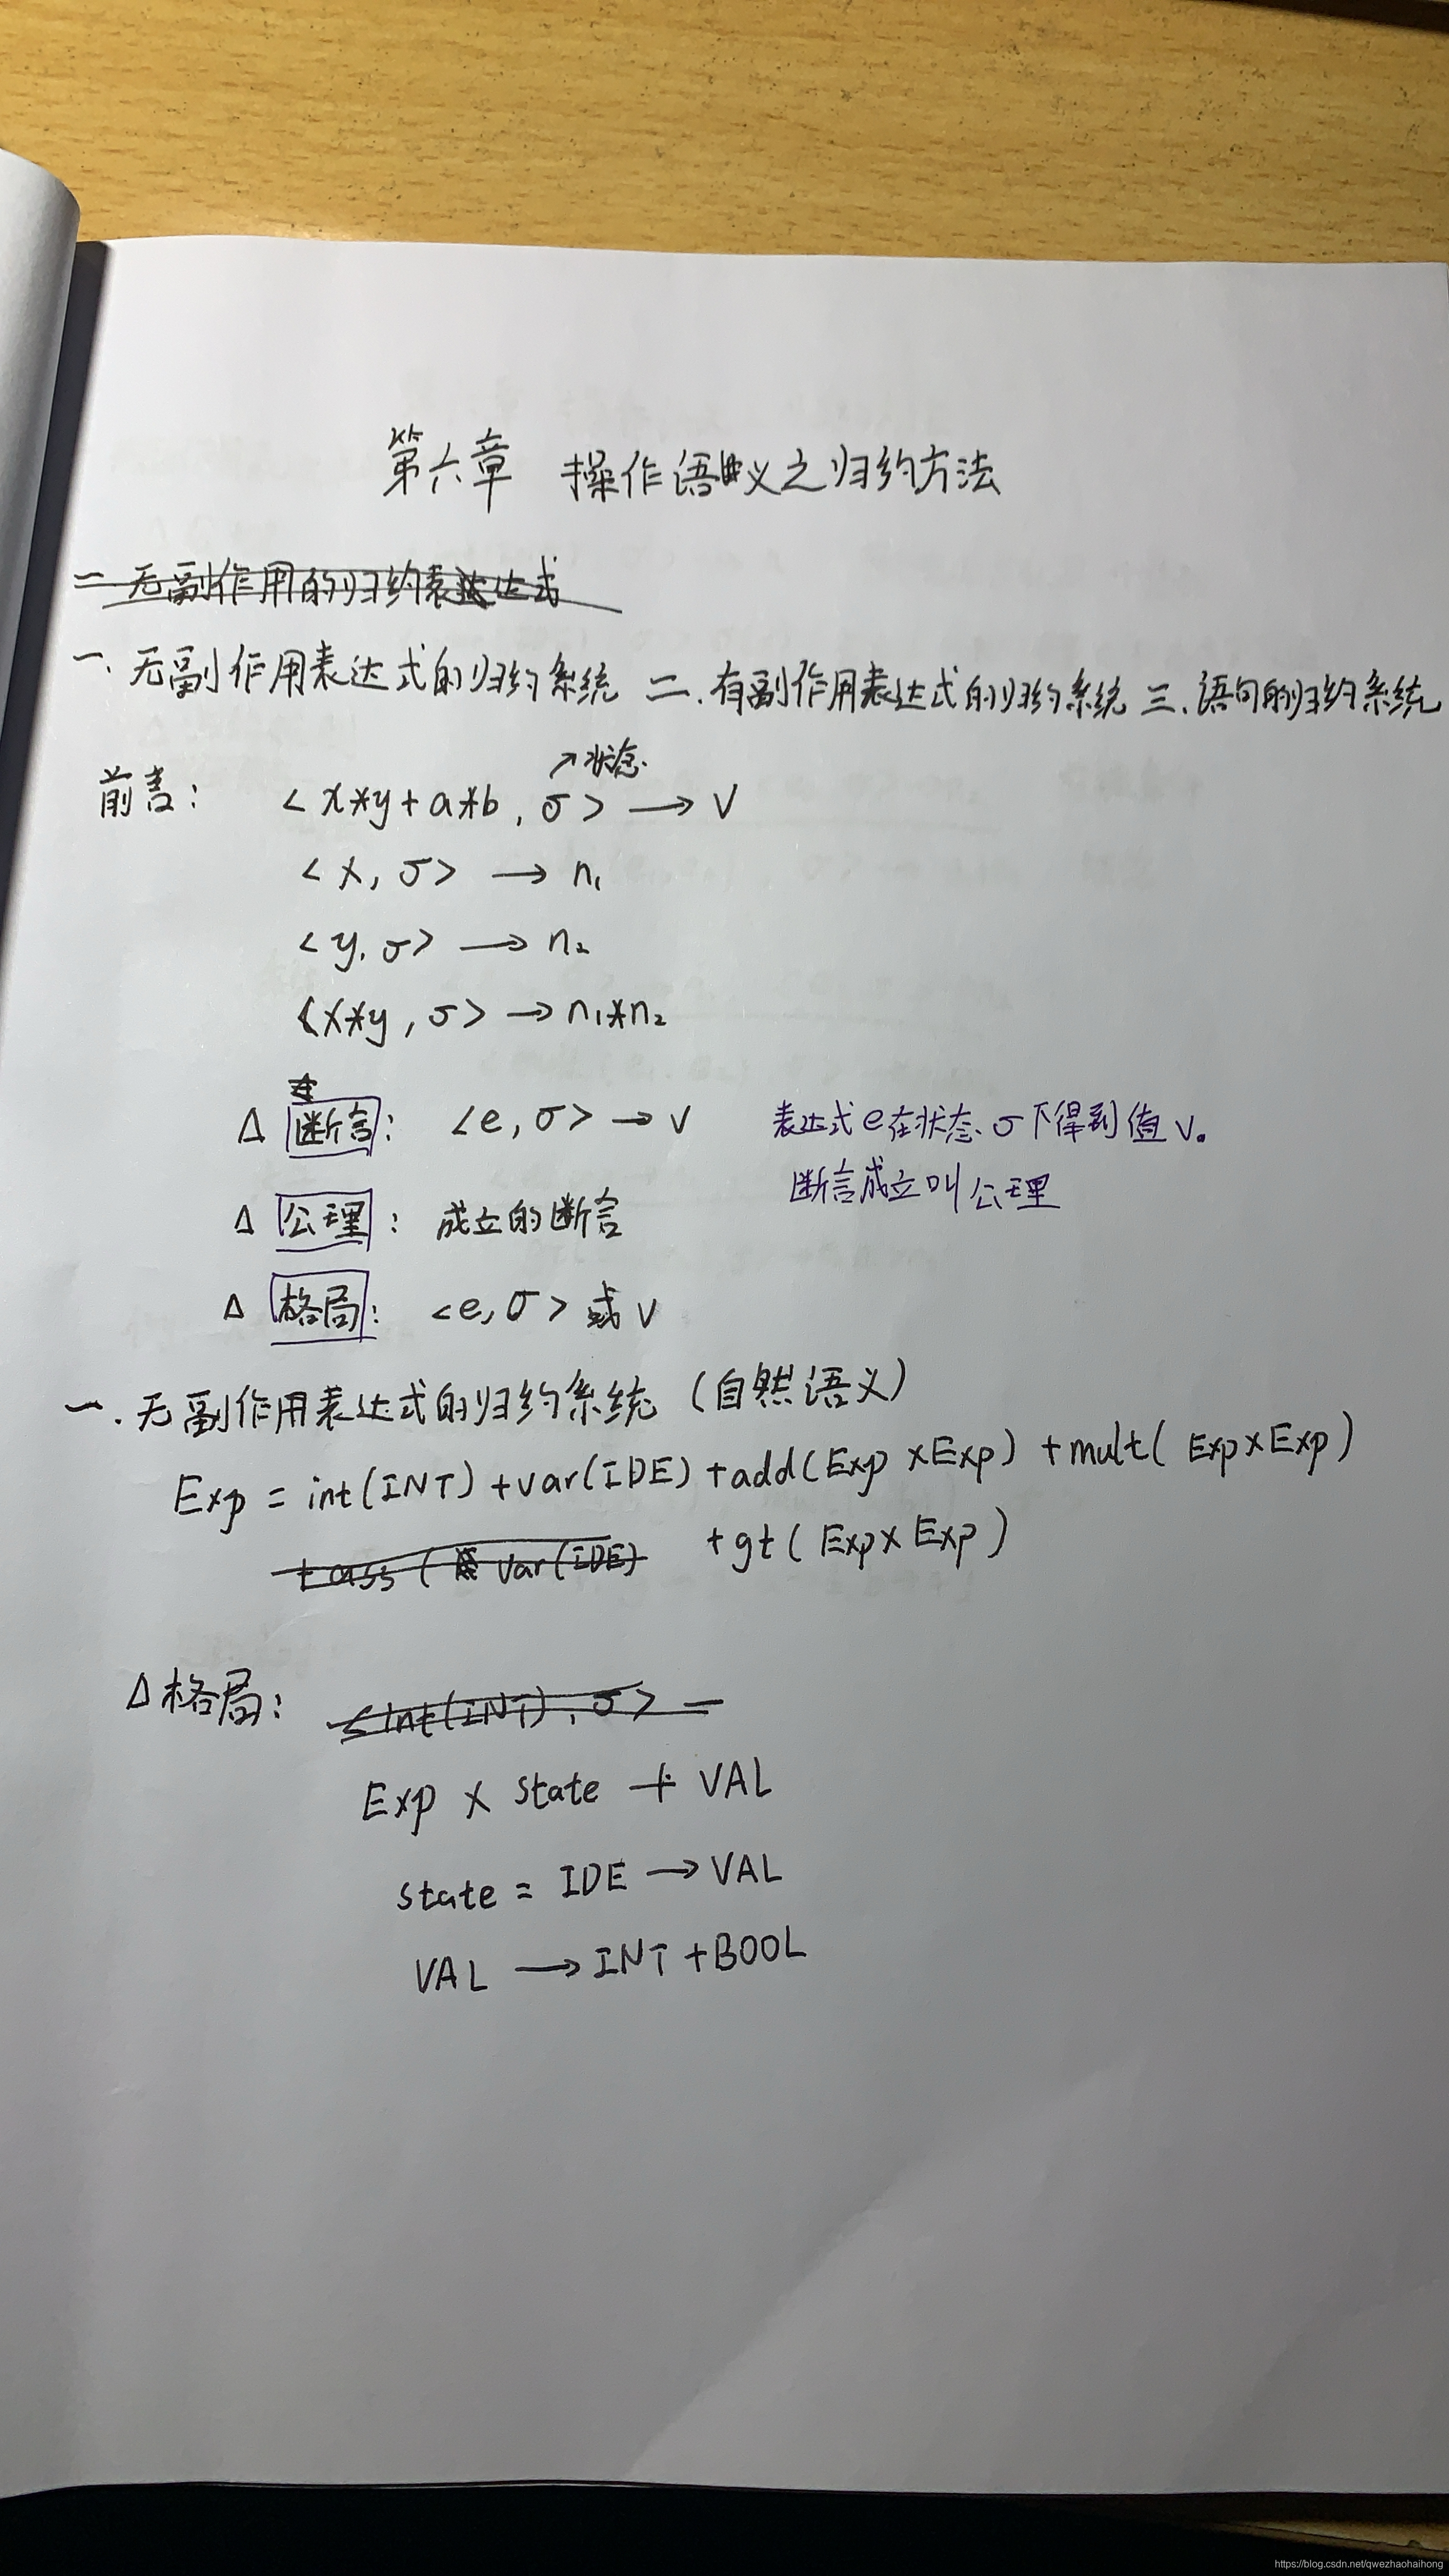 第六章 操作语义之归约方法
二 无副作用的归约表达式
一. 无副作用表达式的归约系统 二. 有副作用表达式的归约系统 三. 语句的归约系统
↗状态.
前言: <x*y+a*b, σ> → V
<x, σ> → n₁
<y, σ> → n₂
<x*y, σ> → n₁*n₂
Δ 断言: <e, σ> → v 表达式e在状态σ下得到值v。
断言成立叫公理
Δ 公理: 成立的断言
Δ 格局: <e, σ> 或 v
一. 无副作用表达式的归约系统 (自然语义)
Exp = int(INT) + var(IDE) + add(Exp × Exp) + mult(Exp × Exp)
+ ass( var(IDE) + gt(Exp × Exp)
Δ 格局: <int(INT), σ> —
Exp × state + VAL
state = IDE → VAL
VAL → INT + BOOL
https://blog.csdn.net/qwezhaohaihong